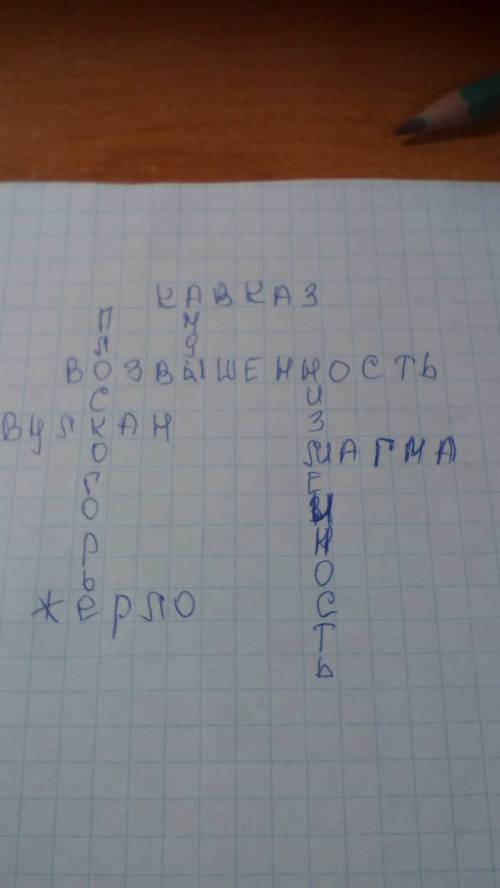 КАВКАЗ
АНДЫ
ПЛОСКОГОРЬЕ
ВОЗВЫШЕННОСТЬ
НИЗМЕННОСТЬ
ВУЛКАН
МАГМА
ЖЕРЛО